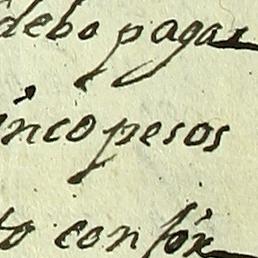 debo pagar
inco pesos
to confor